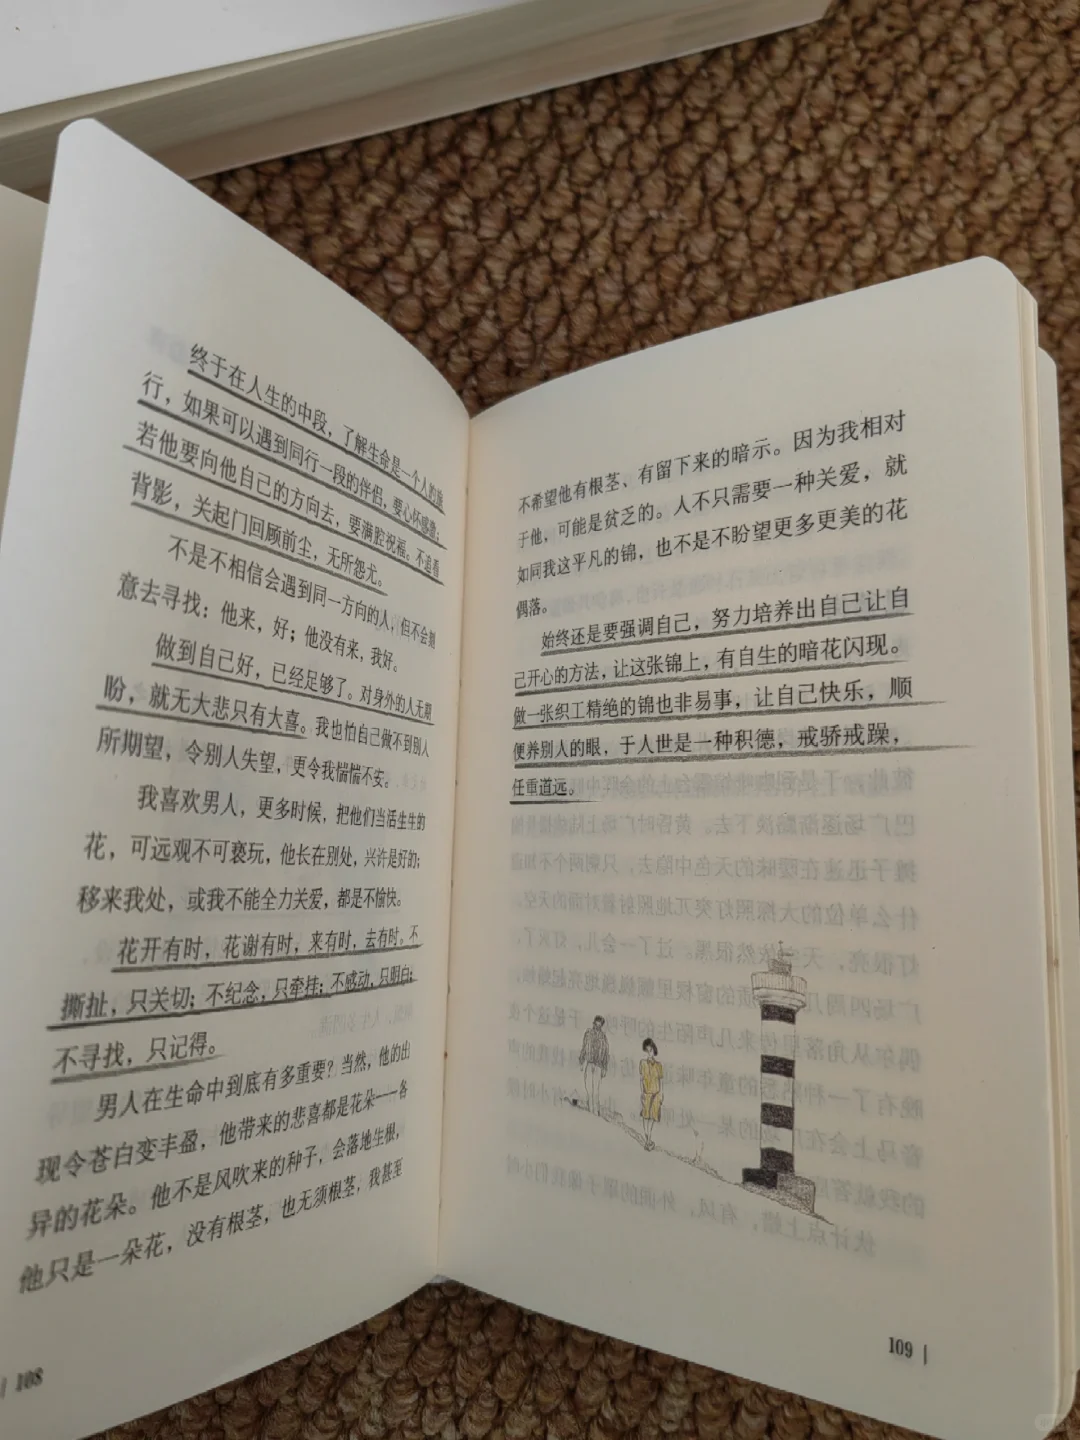 终于在人生的中段，了解生命是一个人的旅
行，如果可以遇到同行一段的伴侣，要心怀感激；
若他要向他自己的方向去，要满腔祝福。不追看
背影，关起门回顾前尘，无所怨尤。
不是不相信会遇到同一方向的人，但不会刻
意去寻找：他来，好；他没有来，我好。
做到自己好，已经足够了。对身外的人无期
盼，就无大悲只有大喜。我也怕自己做不到别人
所期望，令别人失望，更令我惴惴不安。
我喜欢男人，更多时候，把他们当活生生的
花，可远观不可亵玩，他长在别处，兴许是好的；
移来我处，或我不能全力关爱，都是不愉快。
花开有时，花谢有时，来有时，去有时。不
撕扯，只关切；不纪念，只牵挂；不感动，只明白；
不寻找，只记得。
男人在生命中到底有多重要？当然，他的出
现令苍白变丰盈，他带来的悲喜都是花朵——各
异的花朵。他不是风吹来的种子，会落地生根，
他只是一朵花，没有根茎，也无须根茎，我甚至
108
不希望他有根茎、有留下来的暗示。因为我相对
于他，可能是贫乏的。人不只需要一种关爱，就
如同我这平凡的锦，也不是不盼望更多更美的花
偶落。
始终还是要强调自己，努力培养出自己让自
己开心的方法，让这张锦上，有自生的暗花闪现。
做一张织工精绝的锦也非易事，让自己快乐，顺
便养别人的眼，于人世是一种积德，戒骄戒躁，
任重道远。
109